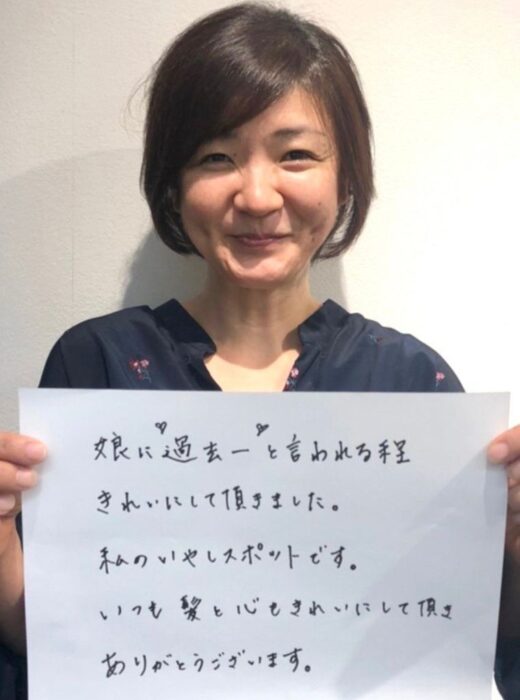 娘に"過去一"と言われる程
きれいにして頂きました。
私のいやしスポットです。
いつも髪と心もきれいにして頂き
ありがとうございます。